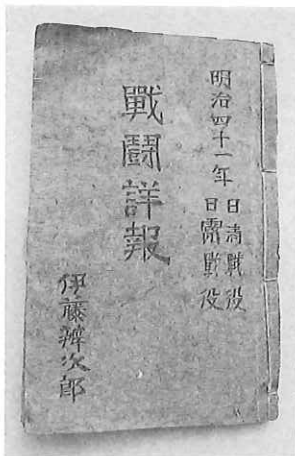 明治四十一年
日清戦役
日露戰役
戰鬪詳報
伊藤辨次郎